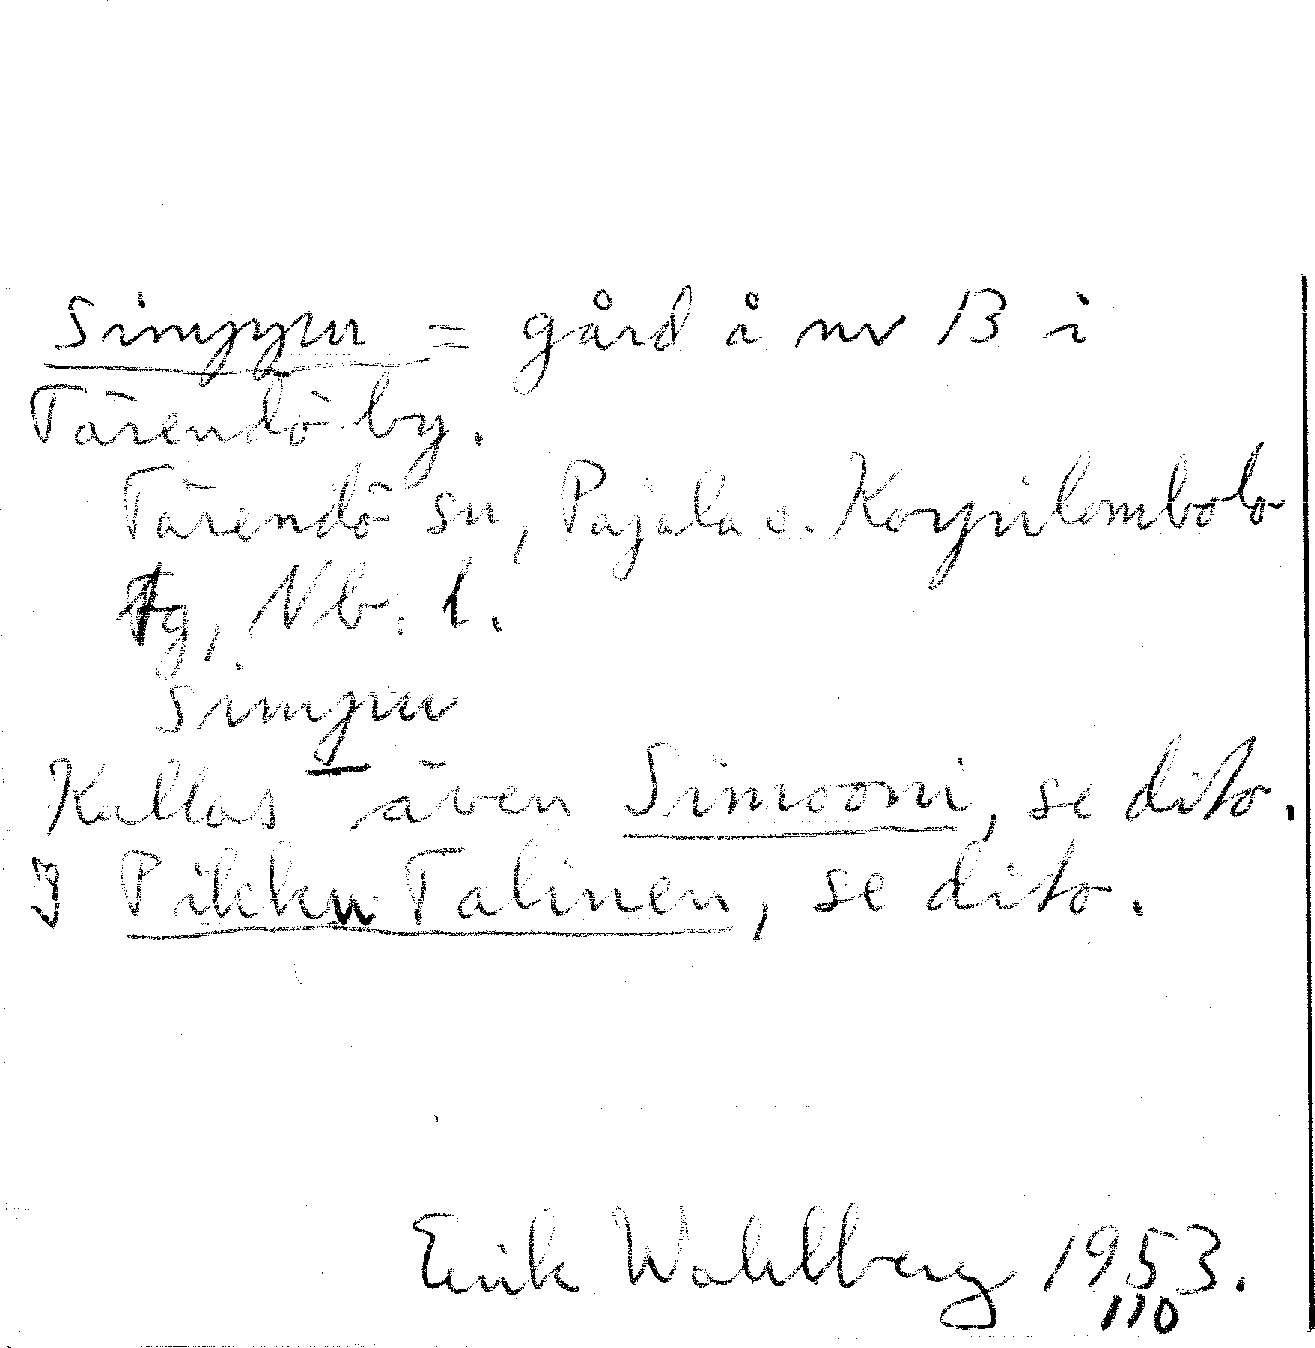 Simppu = gård å nr 13 i
Tärendö by.
Tärendö sn, Pajala o. Korpilombolo
tg, Nb. l.
simpu
Kallas även Simooni, se dito.
J Pikku Talinen, se dito.
Erik Wahlberg 1953.
110